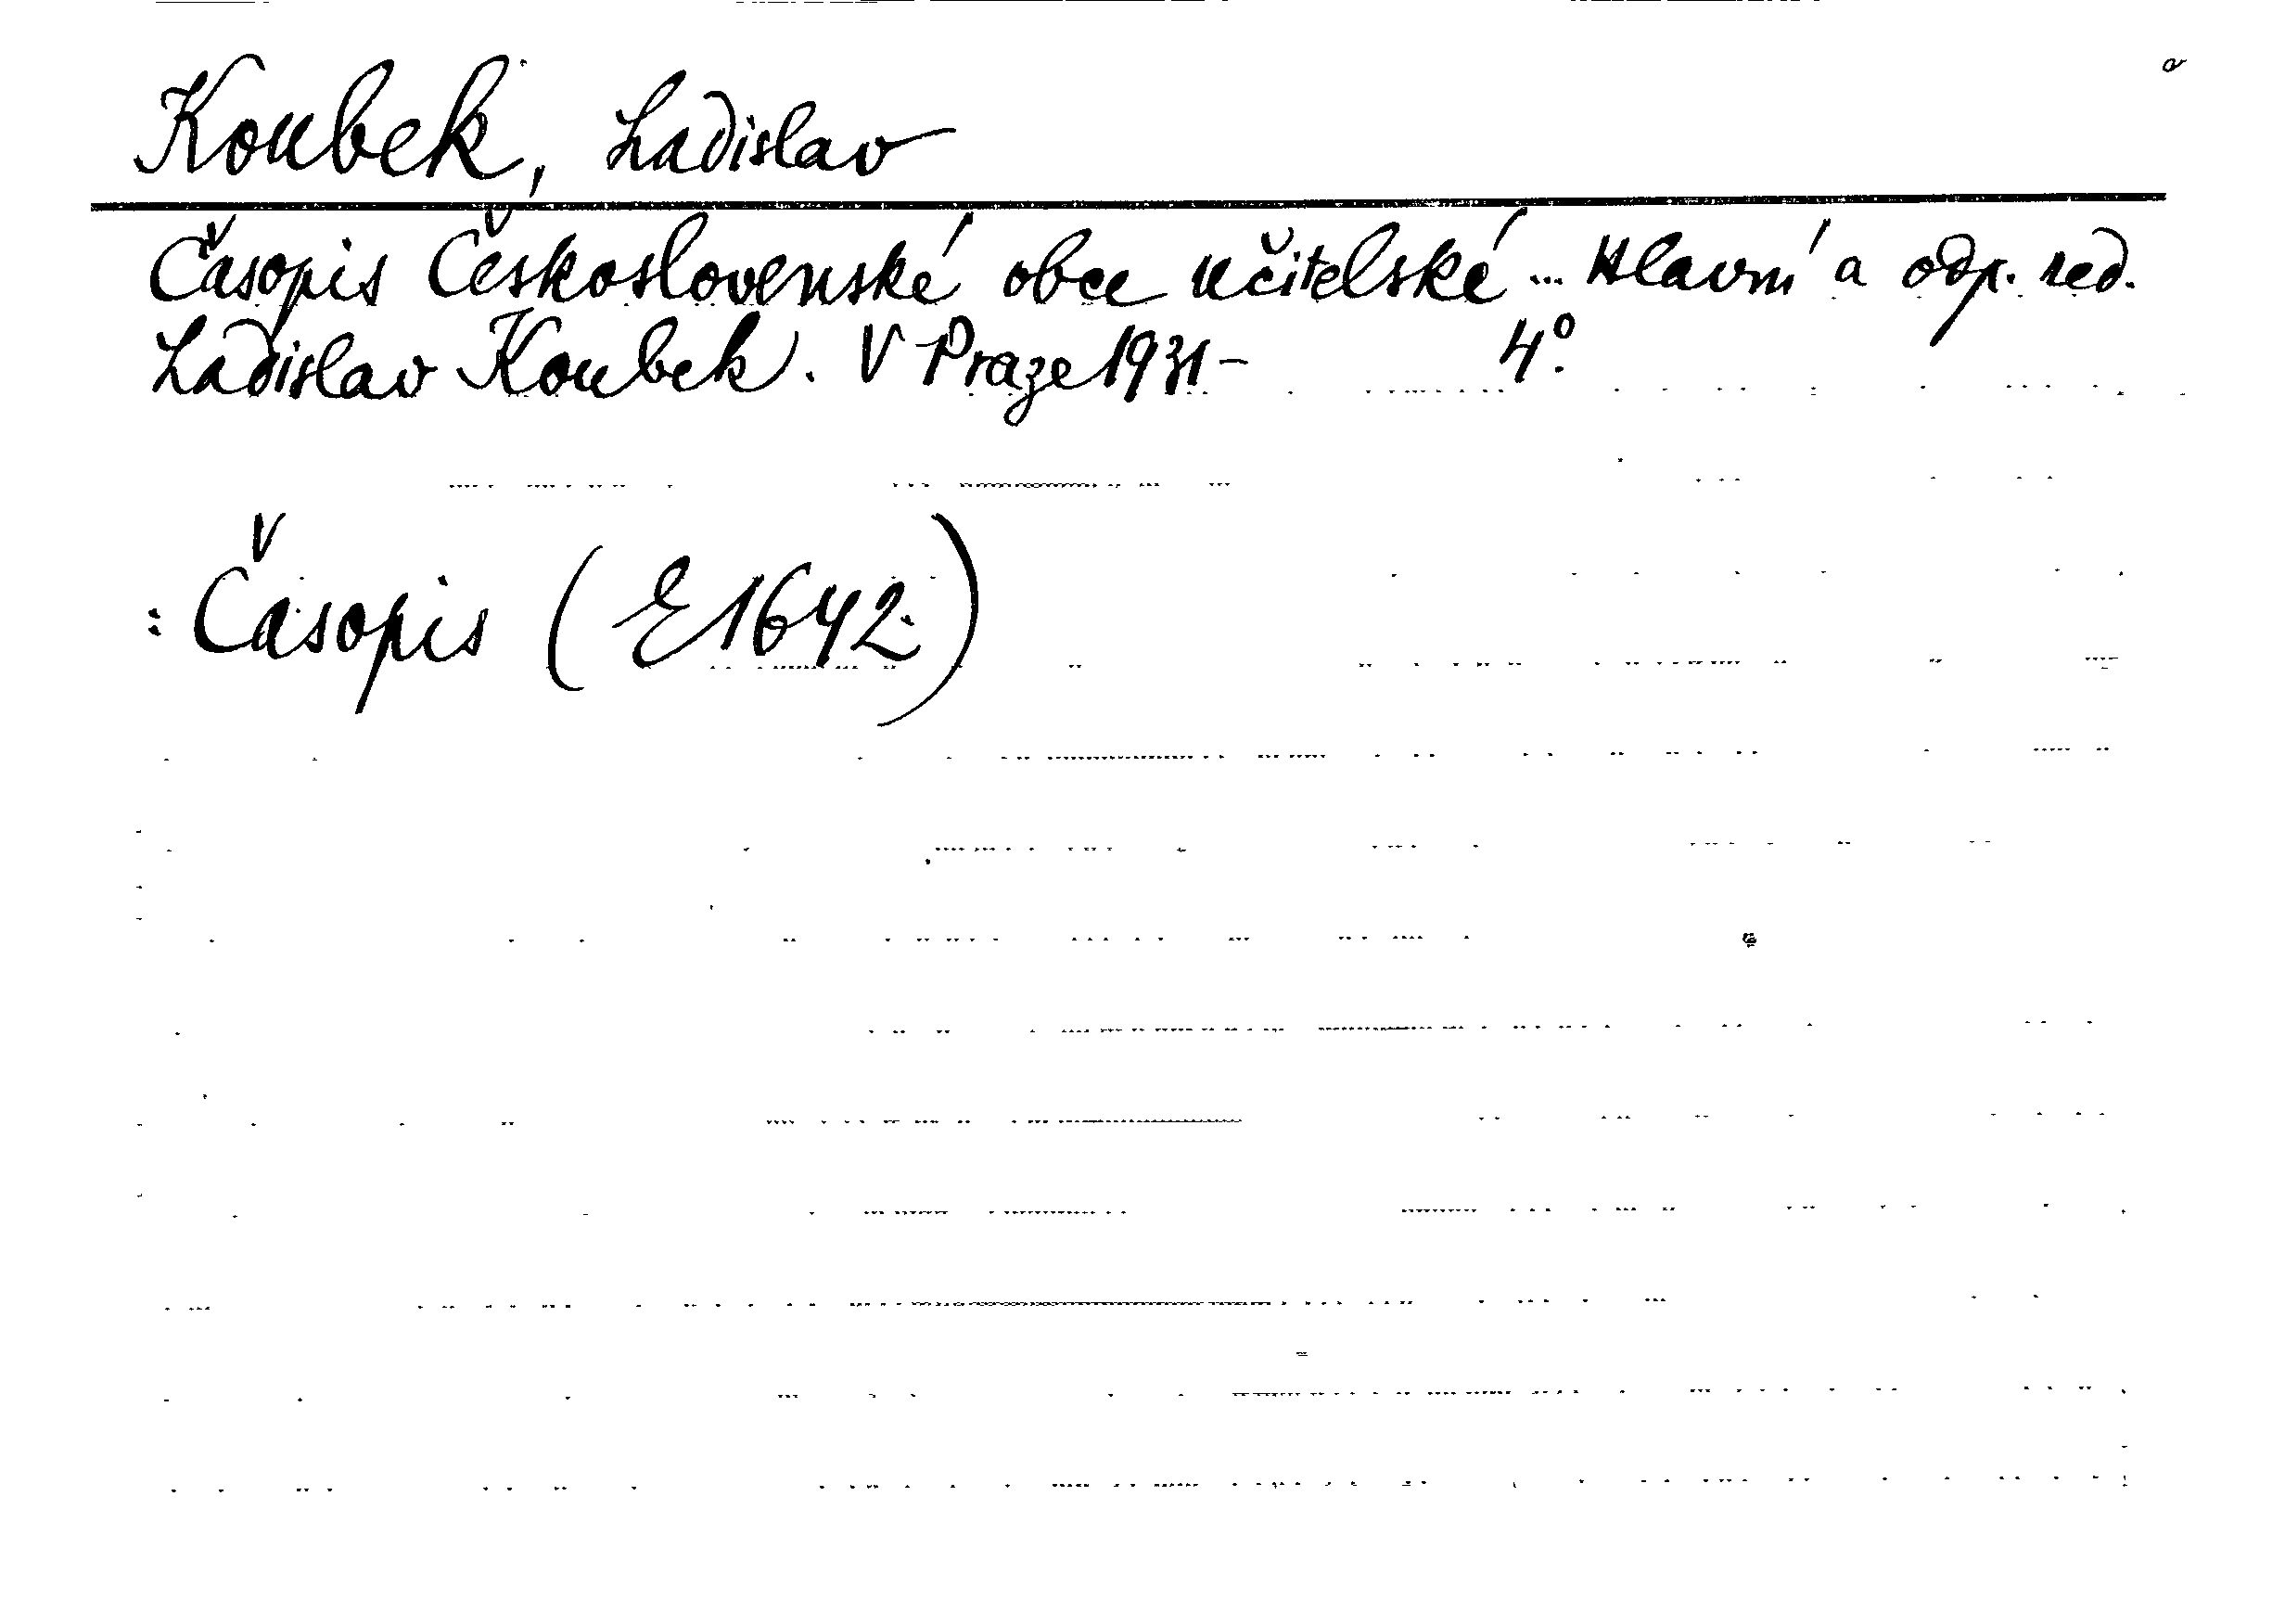 Koubek, Ladislav
Časopis Československé obce učitelské ... Hlavní a odp. red.
Ladislav Koubek. V Praze 1931- 4°.
: Časopis (E1642)